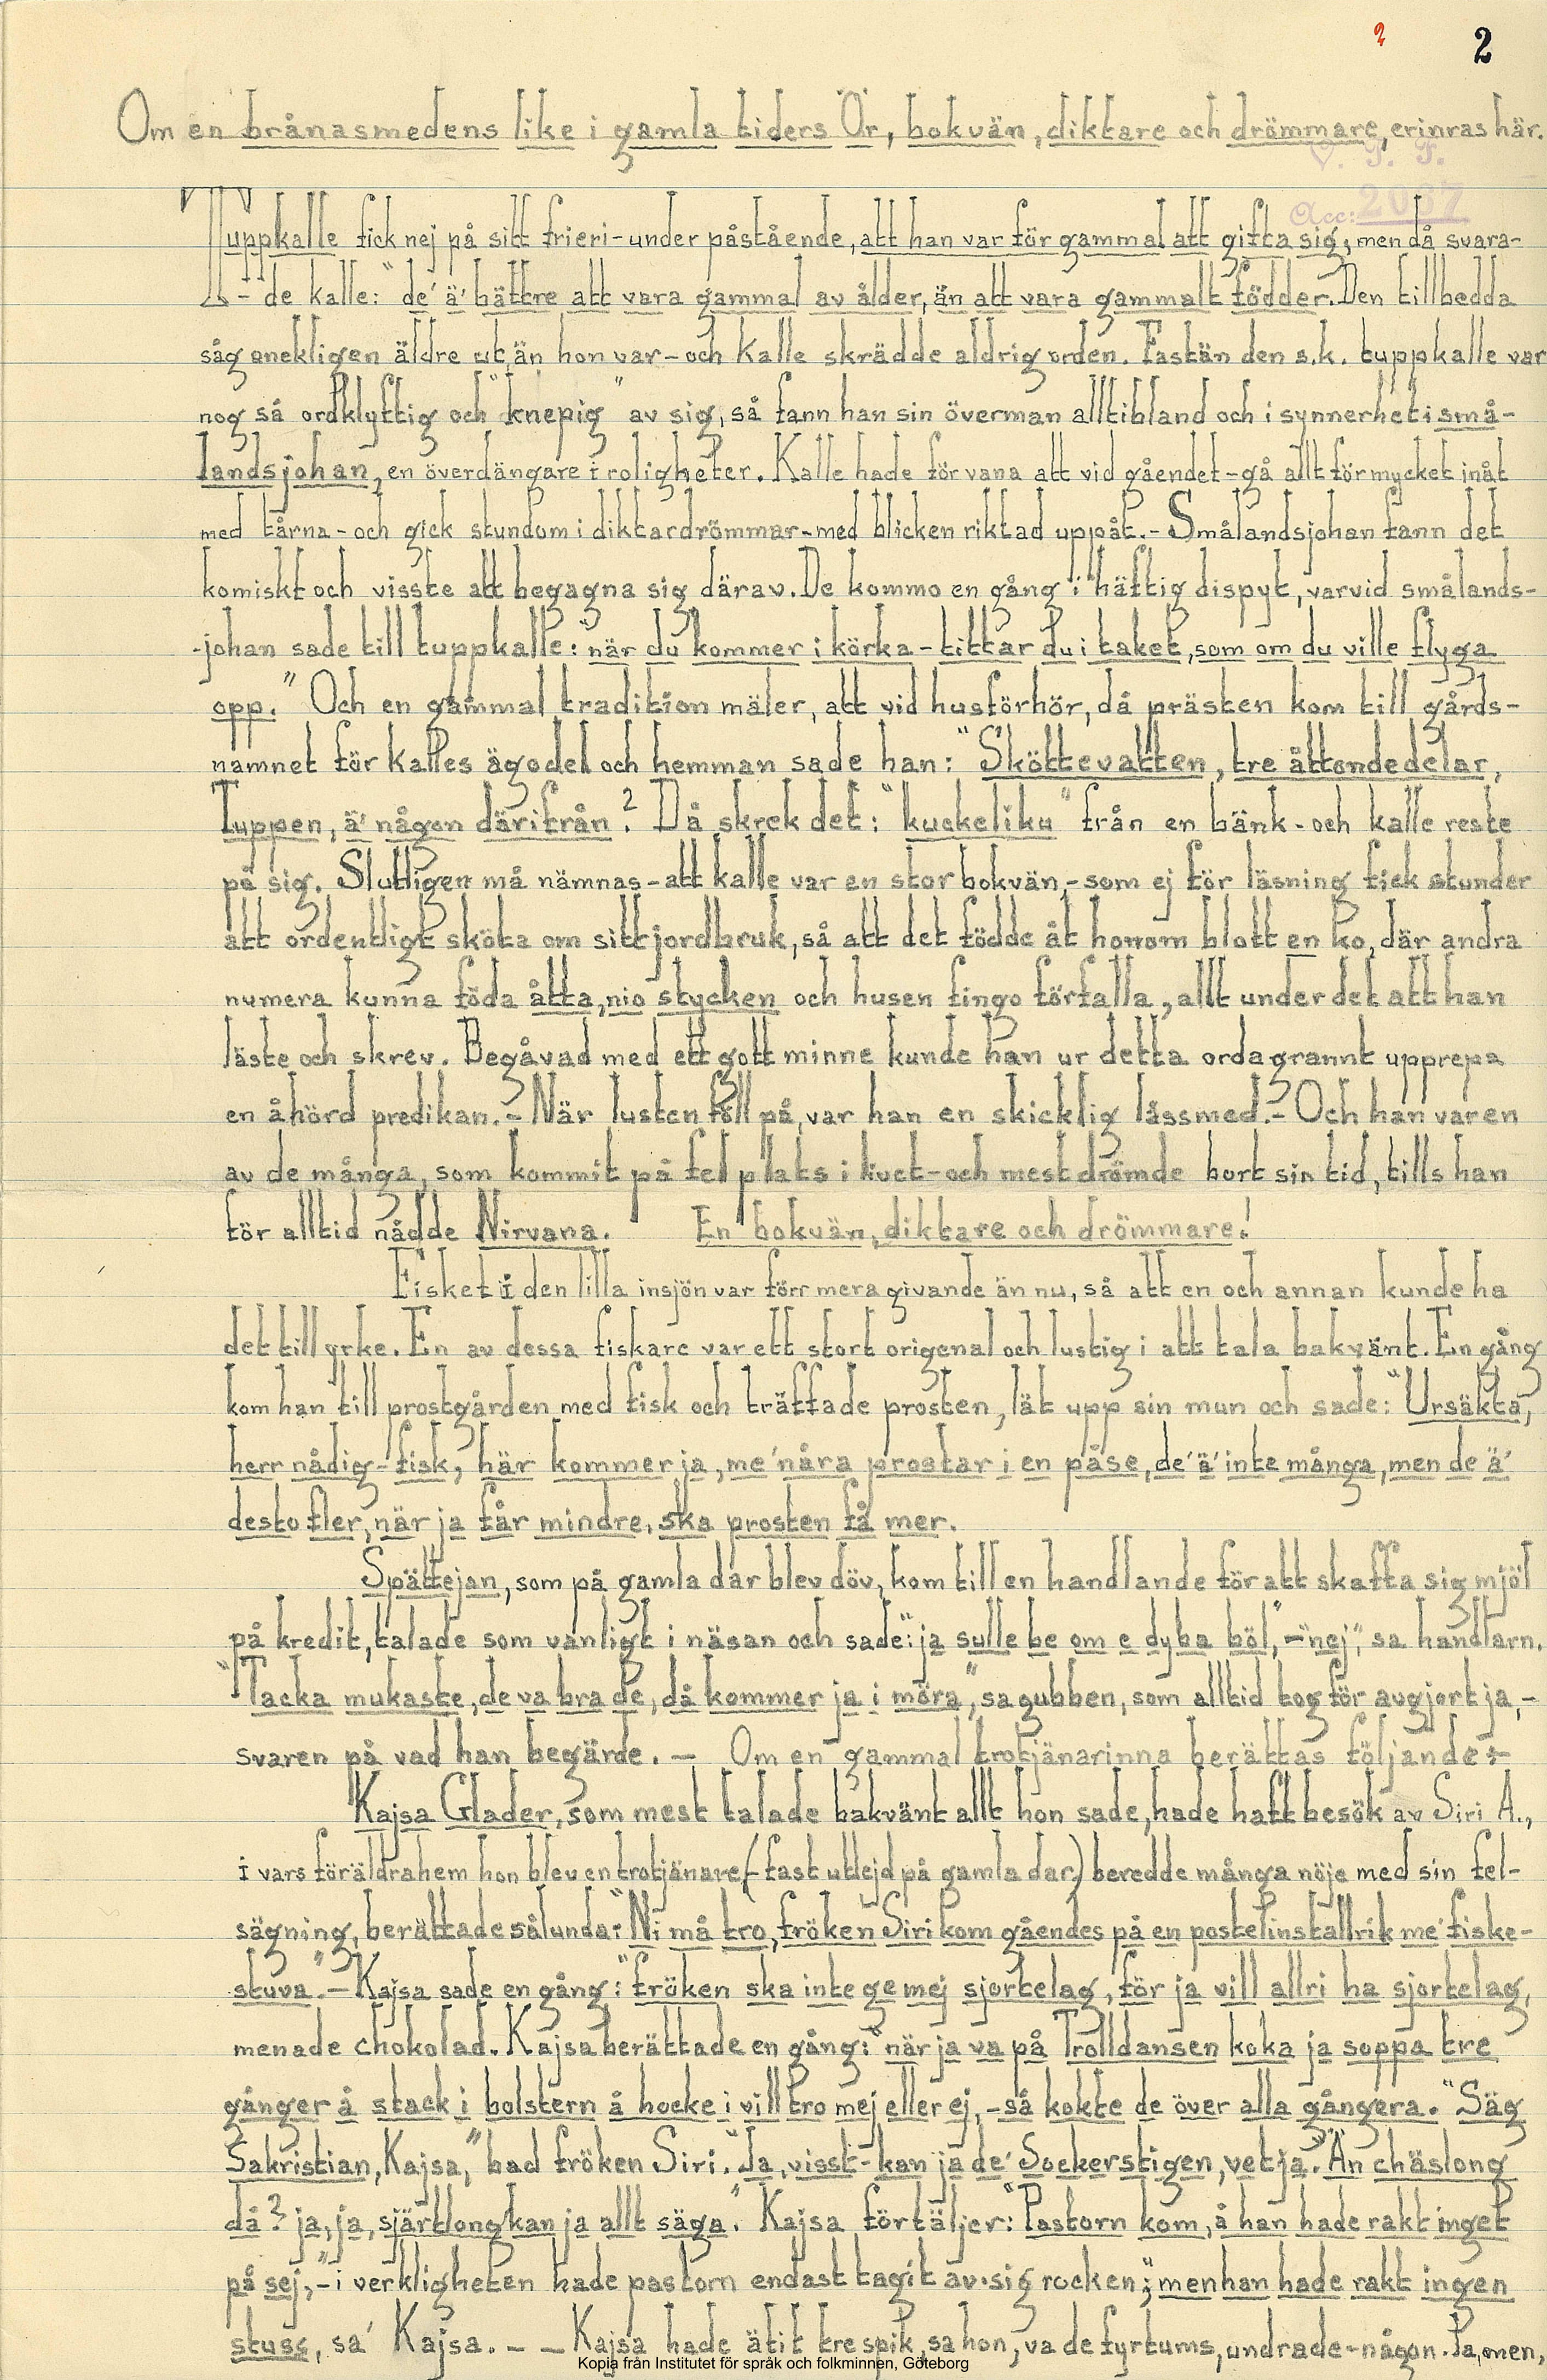 2 2
Om en brånasmedens like i gamla tiders Ör, bokvän, diktare och drömmare, erinras här.
V. F. F.
Acc: 2037
Tuppkalle fick nej på sitt frieri-under påstående, att han var för gammal att gifta sig, men då svara-
-de kalle: "de' ä' bättre att vara gammal av ålder, än att vara gammalt födder. Den tillbedda
såg onekligen äldre ut, än hon var-och Kalle skrädde aldrig orden. Fastän den s.k. tuppkalle var
nog så ordklyftig och "knepig" av sig, så fann han sin överman alltibland och i synnerhet i små-
landsjohan, en överdängare i roligheter. Kalle hade för vana att vid gåendet-gå allt för mycket inåt
med tårna-och gick stundom i diktardrömmar-med blicken riktad uppåt.- Smålandsjohan fann det
komiskt och visste att begagna sig därav. De kommo en gång i häftig dispyt, varvid smålands-
-johan sade till tuppkalle: "när du kommer i körka-tittar du i taket, som om du ville flyga
opp." Och en gammal tradition mäler, att vid husförhör, då prästen kom till gårds-
namnet för Kalles ägodel och hemman sade han: "Sköttevatten, tre åttondedelar,
Tuppen, ä' någon därifrån? Då skrek det: "kuckeliku" från en bänk-och kalle reste
på sig. Slutligen må nämnas-att kalle var en stor bokvän,-som ej för läsning fick stunder
att ordentligt sköta om sitt jordbruk, så att det födde åt honom blott en ko, där andra
numera kunna föda åtta, nio stycken och husen fingo förfalla, allt under det att han
läste och skrev. Begåvad med ett gott minne kunde han ur detta ordagrannt upprepa
en åhörd predikan.- När lusten föll på, var han en skicklig låssmed.- Och han var en
av de många, som kommit på fel plats i livet-och mest drömde bort sin tid, tills han
för alltid nådde Nirvana. En bokvän, diktare och drömmare!
Fisket i den lilla insjön var förr mera givande än nu, så att en och annan kunde ha
det till yrke. En av dessa fiskare var ett stort origenal och lustig i att tala bakvänt. En gång
kom han till prostgården med fisk och träffade prosten, lät upp sin mun och sade: "Ursäkta,
herr nådig-fisk, här kommer ja, me' nåra prostar i en påse, de' ä' inte många, men de ä'
desto fler, när ja får mindre, ska prosten få mer.
Spättejan, som på gamla dar blev döv, kom till en handlande för att skaffa sig mjöl
på kredit, talade som vanligt i näsan och sade: "ja sulle be om e dyba böl",-"nej", sa handlarn.
"Tacka mukaste, de va bra de, då kommer ja i möra", sa gubben, som alltid tog för avgjort ja,-
svaren på vad han begärde. - Om en gammal trotjänarinna berättas följande:-
Kajsa Glader, som mest talade bakvänt allt hon sade, hade haft besök av Siri A.,
i vars föräldrahem hon blev en trotjänare (-fast utlejd på gamla dar) beredde många nöje med sin fel-
sägning, berättade sålunda: "Ni må tro, fröken Siri kom gåendes på en postelinstallrik me' fiske-
stuva".- Kajsa sade en gång: "fröken ska inte ge mej sjortelag, för ja vill allri ha sjortelag,
menade chokolad. Kajsa berättade en gång: "när ja va på Trolldansen koka ja soppa tre
gånger å stack i bolstern å hocke i vill tro mej eller ej,-så kokte de över alla gångera." Säg
Sakristian, Kajsa," bad fröken Siri. "Ja, visst-kan ja de' Sockerstigen, vet ja". "Än chäslong
då? ja, ja, sjärtlong kan ja allt säga". Kajsa förtäljer: "Pastorn kom, å han hade rakt inget
på sej,"-i verkligheten hade pastorn endast tagit av sig rocken;" men han hade rakt ingen
stuss, sa' Kajsa. - - Kajsa hade ätit tre spik, sa hon, va de fyrtums, undrade-någon. Ja, men,
Kopia från Institutet för språk och folkminnen, Göteborg